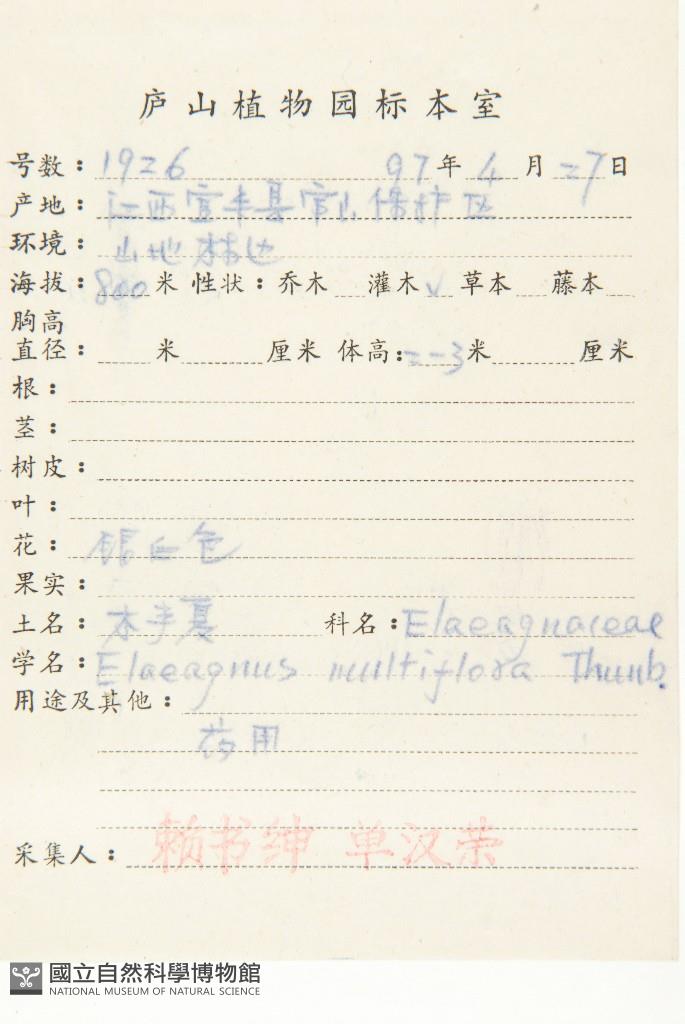 庐山植物园标本室
号数：1926 97年4月27日
产地：江西宜丰县官山保护区
环境：山地林边
海拔：800米 性状：乔木 灌木√ 草本 藤本
胸高
直径： 米 厘米 体高：二-3米 厘米
根：
茎：
树皮：
叶：
花：银白色
果实：
土名：木半夏 科名：Elaeagnaceae
学名：Elaeagnus multiflora Thunb.
用途及其他：
药用
采集人：赖书绅 单汉荣
國立自然科學博物館
NATIONAL MUSEUM OF NATURAL SCIENCE